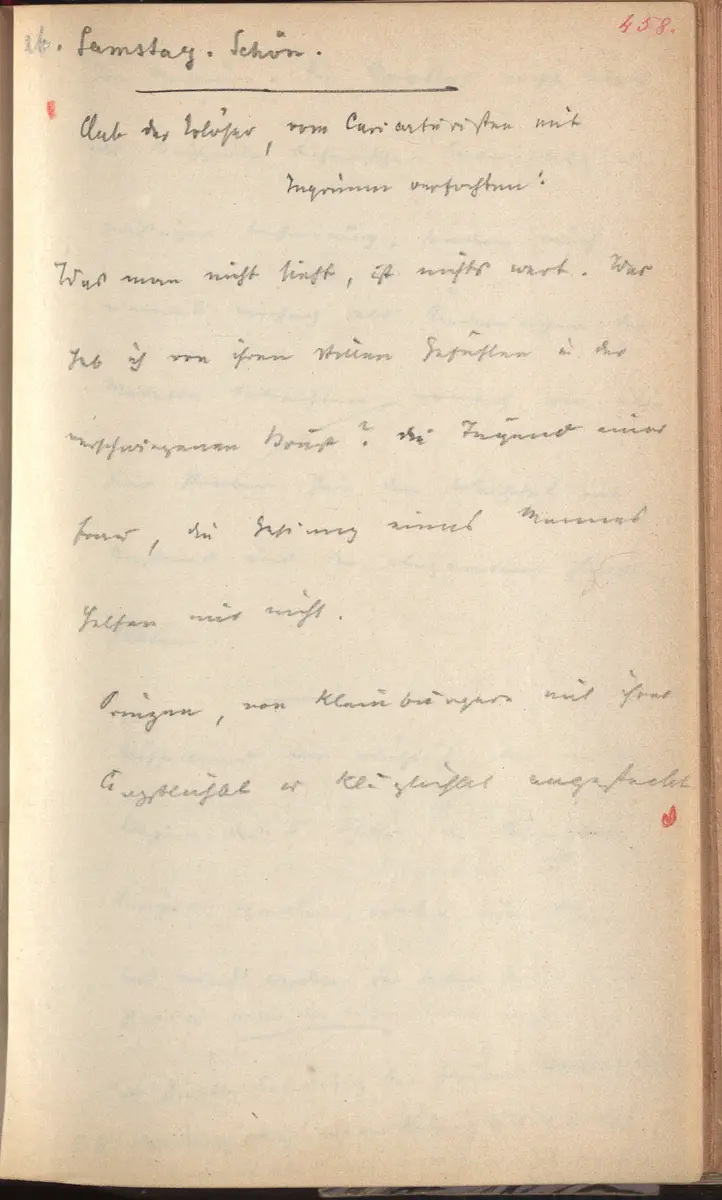 458.
26. Samstag. Schön.
Club der Erlöser, vom Caricaturisten mit
Ingrimm verfochten:
Was man nicht sieht, ist nichts wert. Was
hab ich von ihren stillen Gefühlen in der
verschwiegenen Brust? die Tugend einer
Frau, die Gesinnung eines Mannes
helfen mir nicht.
Prinzen, von Kleinbürgern mit ihrer
Ängstlichkeit u Kläglichkeit angesteckt